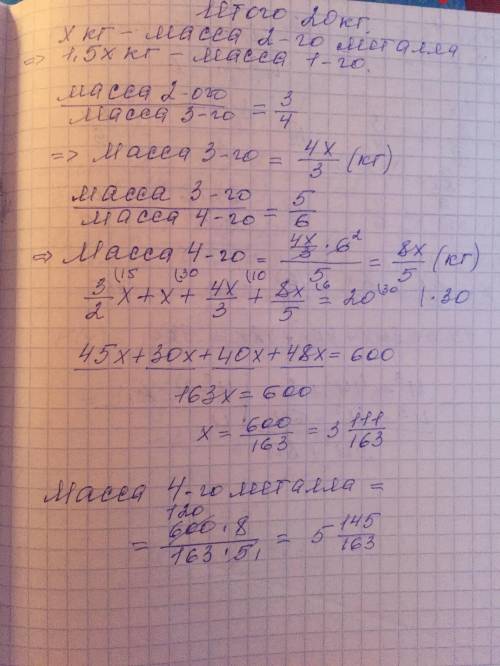 Итого 20кг.
x кг – масса 2-го металла
⇒ 1,5x кг – масса 1-го.
масса 2-ого / масса 3-го = 3/4
⇒ Масса 3-го = 4x/3 (кг)
масса 3-го / масса 4-го = 5/6
⇒ Масса 4-го = (4x/3 · 6²)/5 = 8x/5 (кг)
3/2 (15 x + x (30 + 4x/3 (10 + 8x/5 (6 = 20 (30 | · 30
45x + 30x + 40x + 48x = 600
163x = 600
x = 600/163 = 3 111/163
Масса 4-го металла =
120
= 600 · 8 / 163 · 5 = 5 145/163